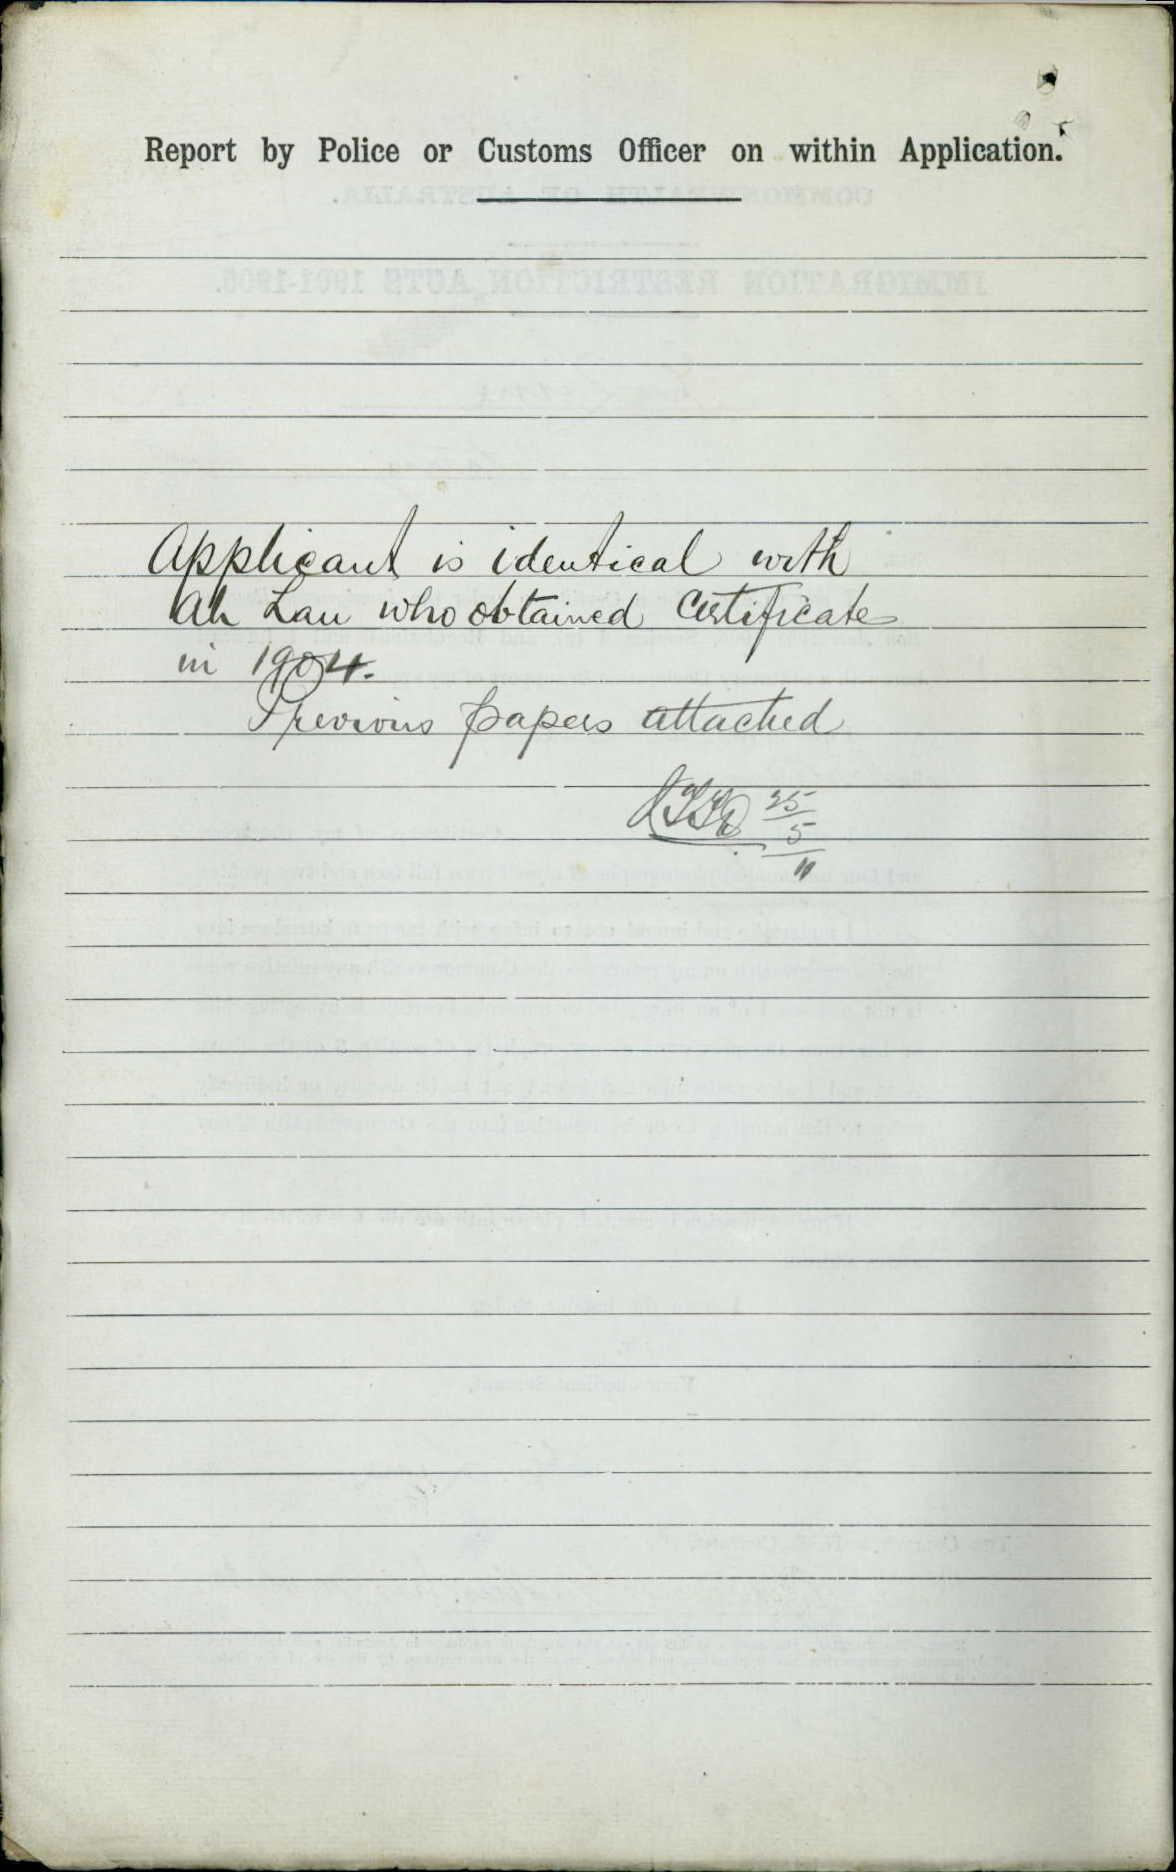 Report by Police or Customs Officer on within Application.
Applicant is identical with
Ah Lau who obtained Certificate
in 1904.
Previous papers attached
25
5
11